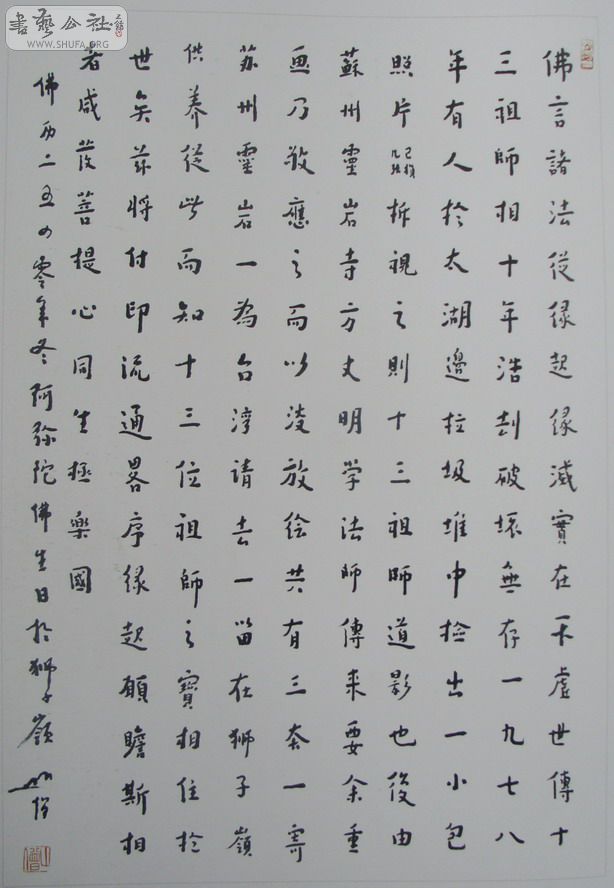 佛言諸法從緣起緣滅實在不虛世傳十
三祖師相十年浩劫破壞無存一九七八
年有人於太湖邊垃圾堆中撿出一小包
照片拆視之則十三祖師道影也後由
蘇州靈岩寺方丈明学法師傳来要余重
畫乃敬應之而以凌放绘共有三套一寄
苏州靈岩一為台淳請去一留在狮子嶺
供養從此而知十三位祖師之寶相住於
世矣兹將付印流通畧序缘起願瞻斯相
者咸發菩提心同生極樂國
佛历二五四零年冬阿弥陀佛生日於獅子嶺 山僧
書藝公社
WWW.SHUFA.ORG